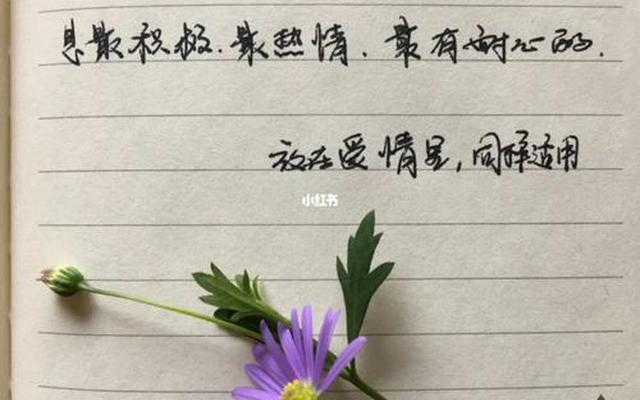 息最积极.最热情.最有耐心的.
放在爱情里,同样适用
小红书